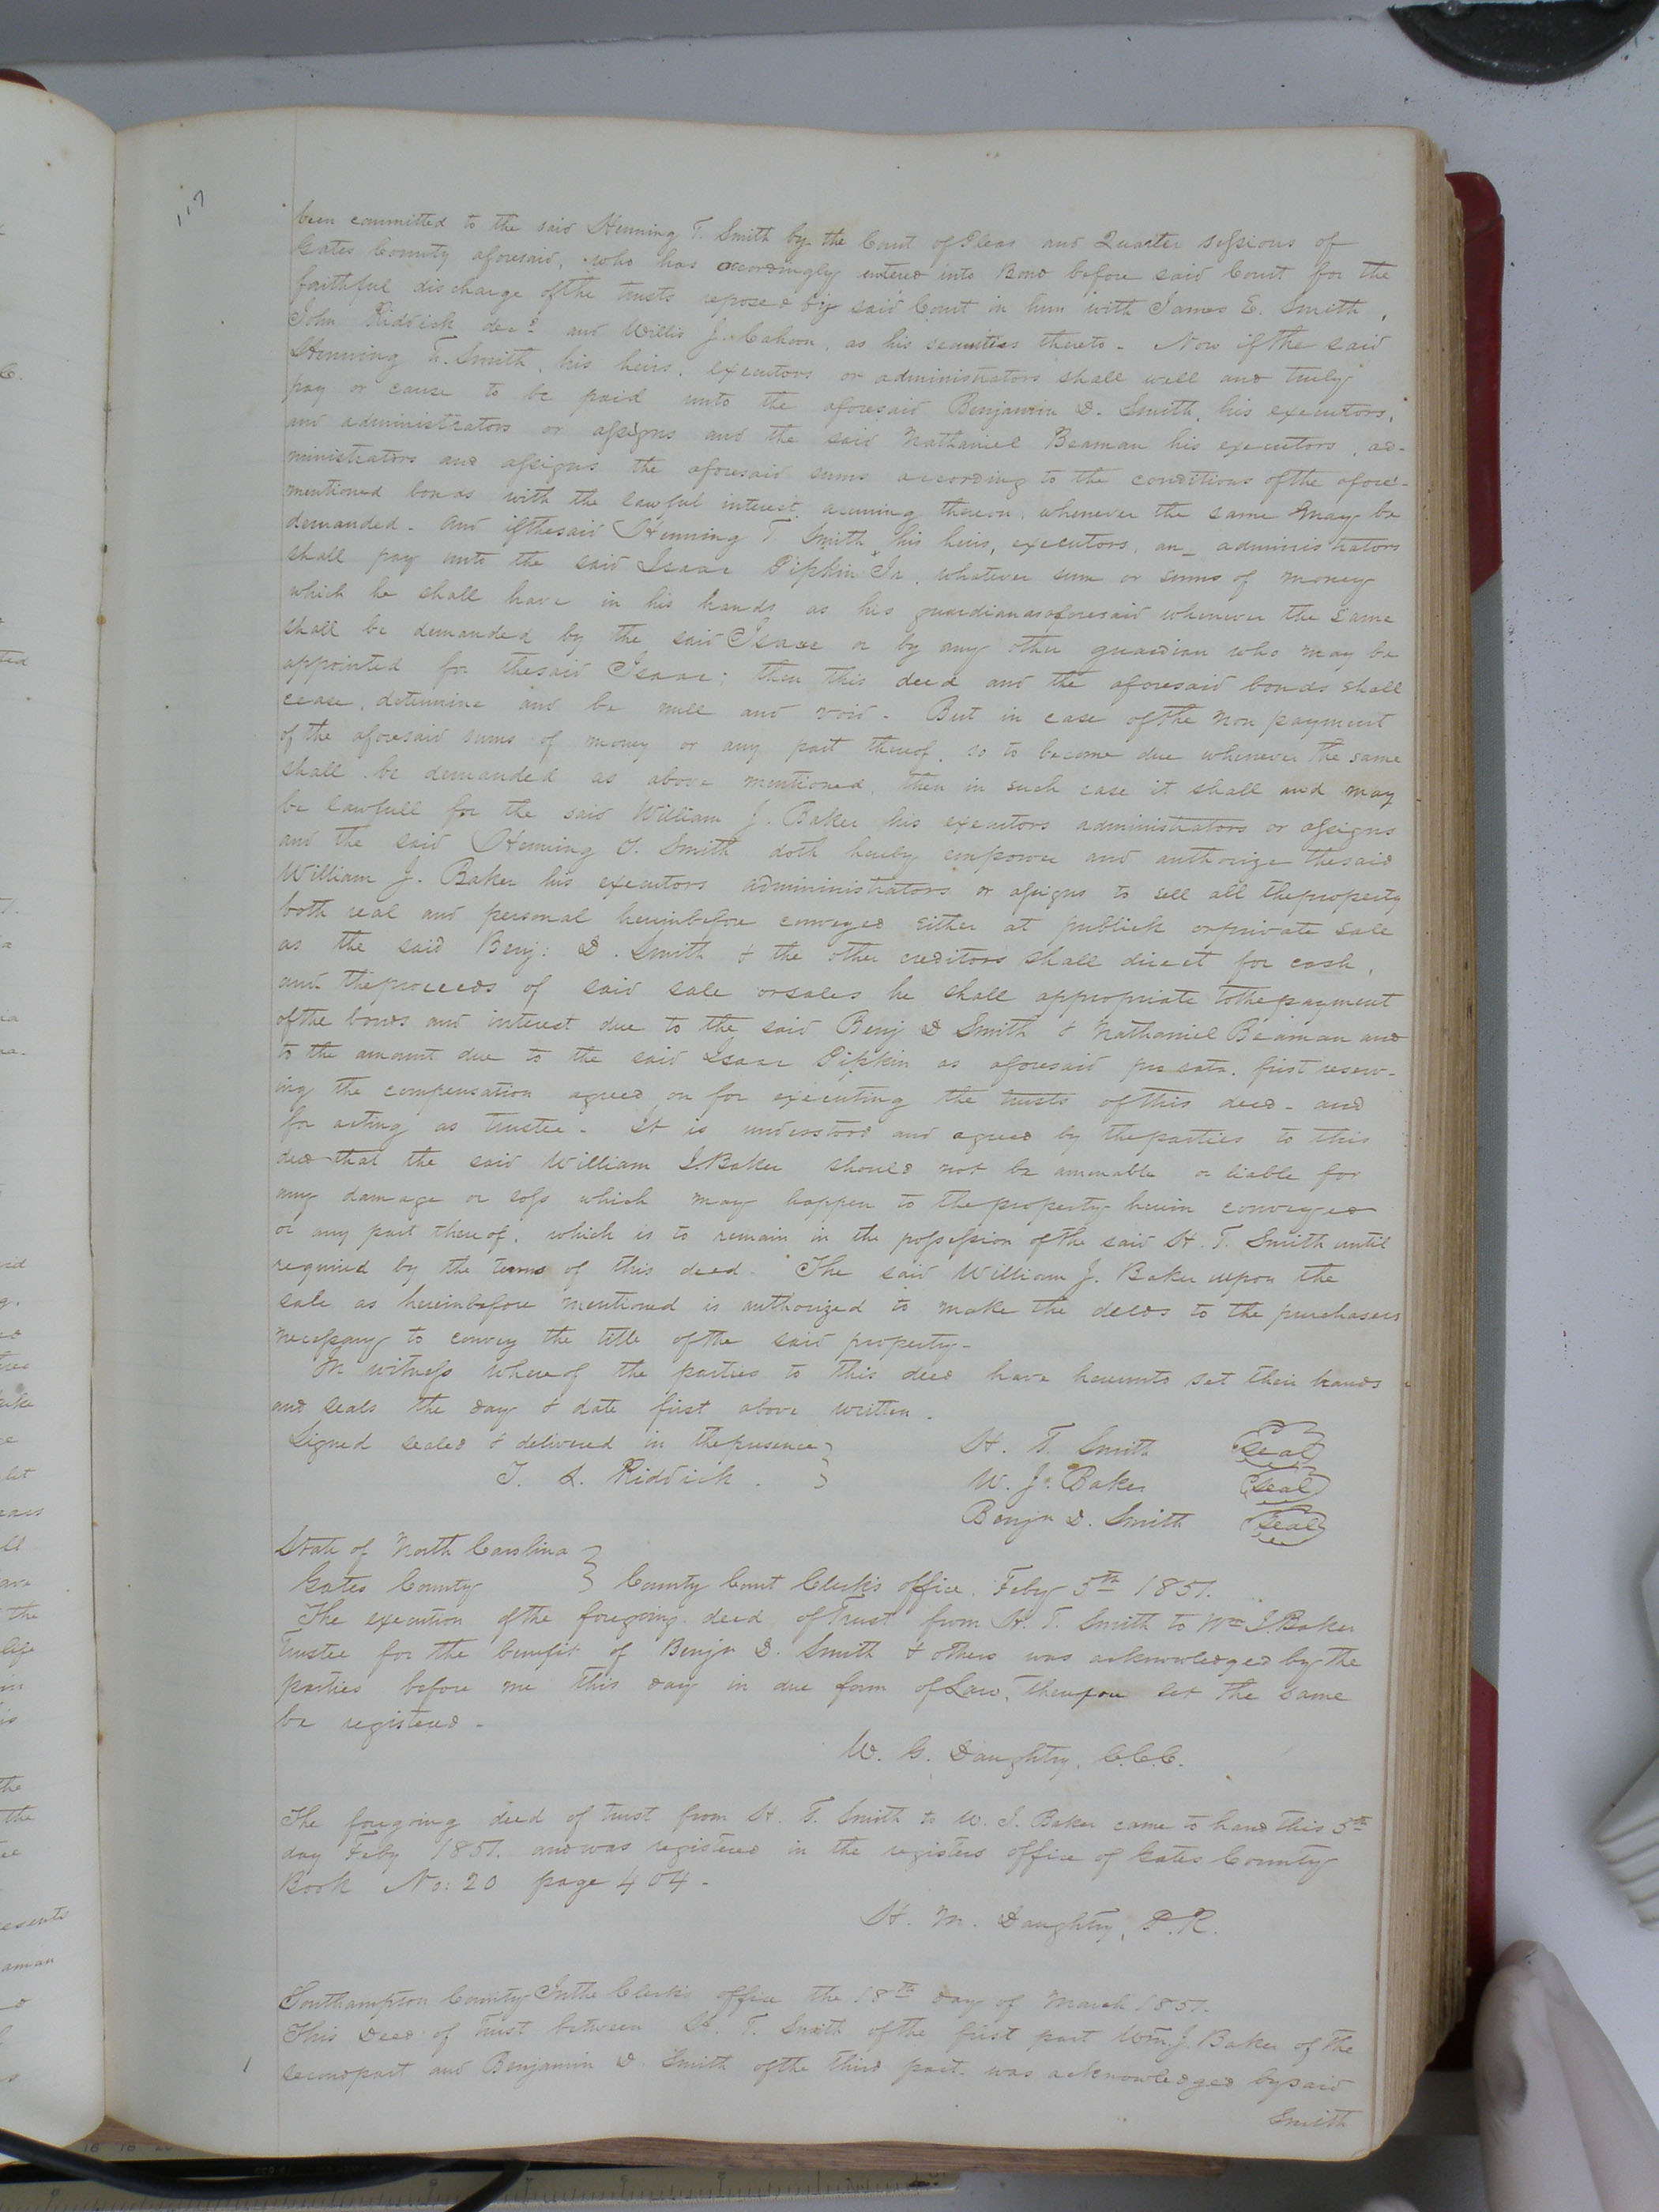 117
been committed to the said Henning T. Smith by the Court of Pleas and Quarter sessions of
Gates County aforesaid, who has accordingly entered into Bond before said Court for the
faithful discharge of the trusts reposed by said Court in him with James E. Smith,
John Riddick decd and Willis J. Cahoon, as his securities thereto - Now if the said
Henning T. Smith, his heirs, executors or administrators shall well and truly
pay or cause to be paid unto the aforesaid Benjamin D. Smith, his executors,
and administrators or assigns and the said Nathaniel Beaman his executors, ad-
ministrators and assigns the aforesaid sums according to the conditions of the afore-
mentioned bonds with the lawful interest accruing thereon, whenever the same may be
demanded - and if the said Henning T Smith, his heirs, executors, an_ administrators
shall pay unto the said Isaac Pipkin Jr, whatever sum or sums of money
which he shall have in his hands as his guardian as aforesaid whenever the same
shall be demanded by the said Isaac or by any other guardian who may be
appointed for the said Isaac; then this deed and the aforesaid bonds shall
cease, determine and be null and void - But in case of the non payment
of the aforesaid sums of money or any part thereof, so to become due whenever the same
shall be demanded as above mentioned, then in such case it shall and may
be lawfull for the said William J. Baker his executors administrators or assigns
and the said Henning T. Smith doth hereby empower and authorize the said
William J. Baker his executors admininistrators or assigns to sell all the property
both real and personal hereinbefore conveyed either at publick or private sale
as the said Benj: D. Smith & the other creditors shall direct for cash,
and the proceeds of said sale or sales he shall appropriate to the payment
of the bonds and interest due to the said Benj D Smith & Nathaniel Beaman and
to the amount due to the said Isaac Pipkin as aforesaid pro rata, first reserv-
ing the compensation agreed on for executing the trusts of this deed - and
for acting as trustee - It is understood and agreed by the parties to this
deed that the said William J. Baker should not be amenable or liable for
any damage or loss which may happen to the property herein conveyed
or any part thereof, which is to remain in the possession of the said H. T. Smith until
required by the terms of this deed. The said William J. Baker upon the
sale as hereinbefore mentioned is authorized to make the deeds to the purchasers
necessary to convey the title of the said property -
In witness whereof the parties to this deed have hereunto set their hands
and seals the day & date first above written.
Signed sealed & delivered in the presence } H. T. Smith (Seal)
T. L. Riddick. } W. J. Baker (Seal)
Benjn D. Smith (Seal)
State of North Carolina }
Gates County } County Court Clerk's office. Feby 5th 1851.
The execution of the foregoing deed of Trust from H. T. Smith to Wm J Baker
Trustee for the benefit of Benjn D. Smith & others was acknowledged by the
parties before me this day in due form of Law, therefore let the same
be registered -
W. G. Daughtry, C.C.C.
The foregoing deed of trust from H. T. Smith to W. J. Baker came to hand this 5th
day Feby 1851. and was registered in the registers office of Gates County
Book No: 20 page 404 -
H. M. Daughtry, P.R.
Southampton County In the Clerk's office the 18th day of March 1851.
This Deed of Trust between H. T. Smith of the first part Wm. J. Baker of the
second part and Benjamin D. Smith of the third part was acknowledged by said
Smith